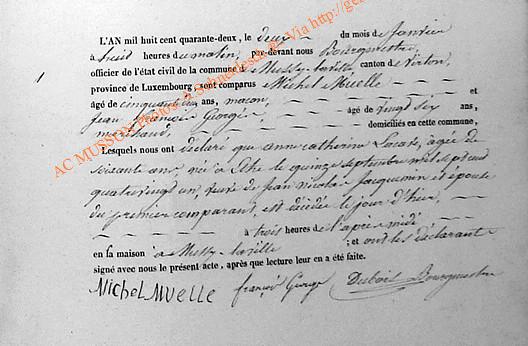 L'AN mil huit cent quarante-deux, le deux du mois de Janvier
à huit heures du matin, par-devant nous Bourgmestre,
officier de l'état civil de la commune de Mussy-la-ville canton de Virton,
province de Luxembourg, sont comparus Michel Muelle
1
âgé de cinquante ans, maçon, et
Jean François George âgé de vingt six ans,
marchand, domiciliés en cette commune,
Lesquels nous ont déclaré que anne catherine Lacave, agée de
soixante ans, née à Ethe le quinze septembre mil sept cent
quatrevingt un veuve de Jean nicolas Jacquemin et épouse
du premier comparant, est décédée le jour d'hier,
à trois heures de l'après midi
en sa maison à Mussy-la ville ; et ont les déclarant
signé avec nous le présent acte, après que lecture leur en a été faite.
Michel Muelle françois George Dubois Bourgmestre
AC MUSSON Photos
Via http://ge